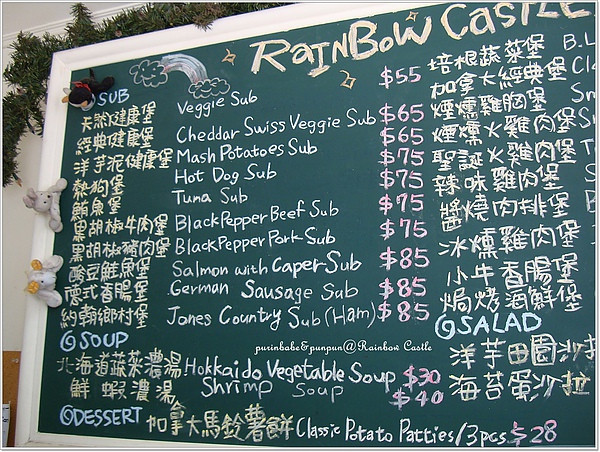 RAINBOW CASTLE
@SUB
天然健康堡 Veggie Sub $55
經典健康堡 Cheddar Swiss Veggie Sub $65
洋芋泥健康堡 Mash Potatoes Sub $65
熱狗堡 Hot Dog Sub $75
鮪魚堡 Tuna Sub $75
黑胡椒牛肉堡 Black Pepper Beef Sub $75
黑胡椒豬肉堡 Black Pepper Pork Sub $75
酸豆鮭魚堡 Salmon with Caper Sub $85
德式香腸堡 German Sausage Sub $85
約翰鄉村堡 Jones Country Sub (Ham) $85
@SOUP
北海道蔬菜濃湯 Hokkaido Vegetable Soup $30
鮮蝦濃湯 Shrimp Soup $40
@DESSERT 加拿大馬鈴薯餅 Classic Potato Patties/3pcs $28
培根蔬菜堡 B.L
加拿大經典堡 Cla
煙燻雞胸堡 Sm
煙燻火雞肉堡 S
聖誕火雞肉堡
辣味雞肉堡
醬燒肉排堡
冰燻雞肉堡
小牛香腸堡
焗烤海鮮堡
@SALAD
洋芋田園沙拉
海苔蛋沙拉
purinbabe&punpun@Rainbow Castle